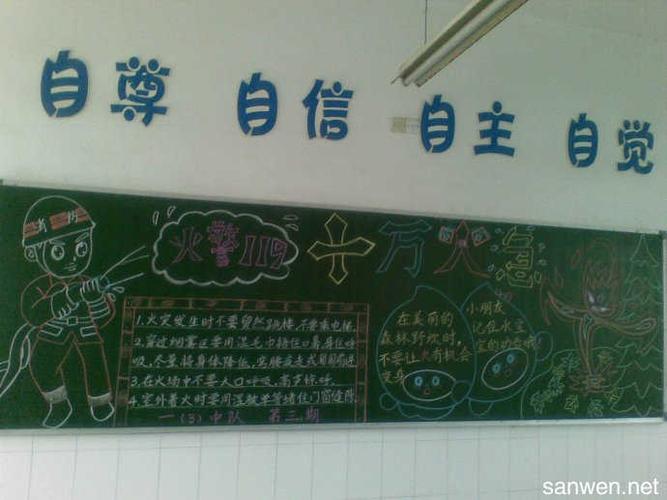 自尊 自信 自主 自觉
火警119
十万火急
1.火灾发生时不要贸然跳楼,不要乘电梯.
2.穿过烟雾区要用湿毛巾捂住口鼻等呼
吸,尽量将身体降低,弯腰或走或匍匐前进
3.在火场中不要大口呼吸,高声
4.室外着火时要用湿被单等堵住门窗缝隙
一(3)中队 第三期
在美丽的
森林野炊时,
不要让火有机会
变身
小朋友
记住水宝
宝的
sanwen.net